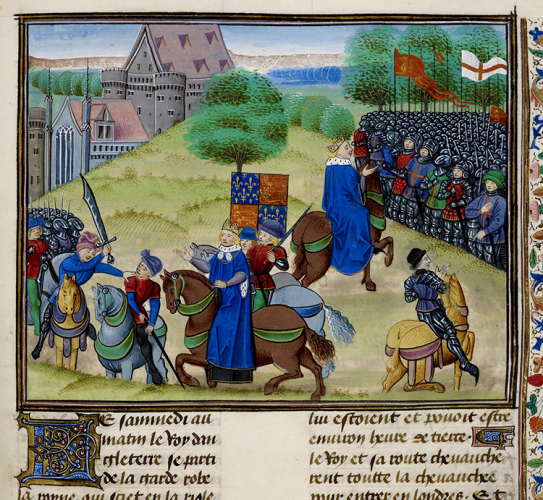 Le sammedi au
matin le Roy dan
gleterre se parti
de la garde robe
la royne qui siet en la riole
lui estoient et pouoit estre
environ heure de tierce.
le Roy et sa route chevauche
rent toutte la chevauchee
pour entrer en londres. Et